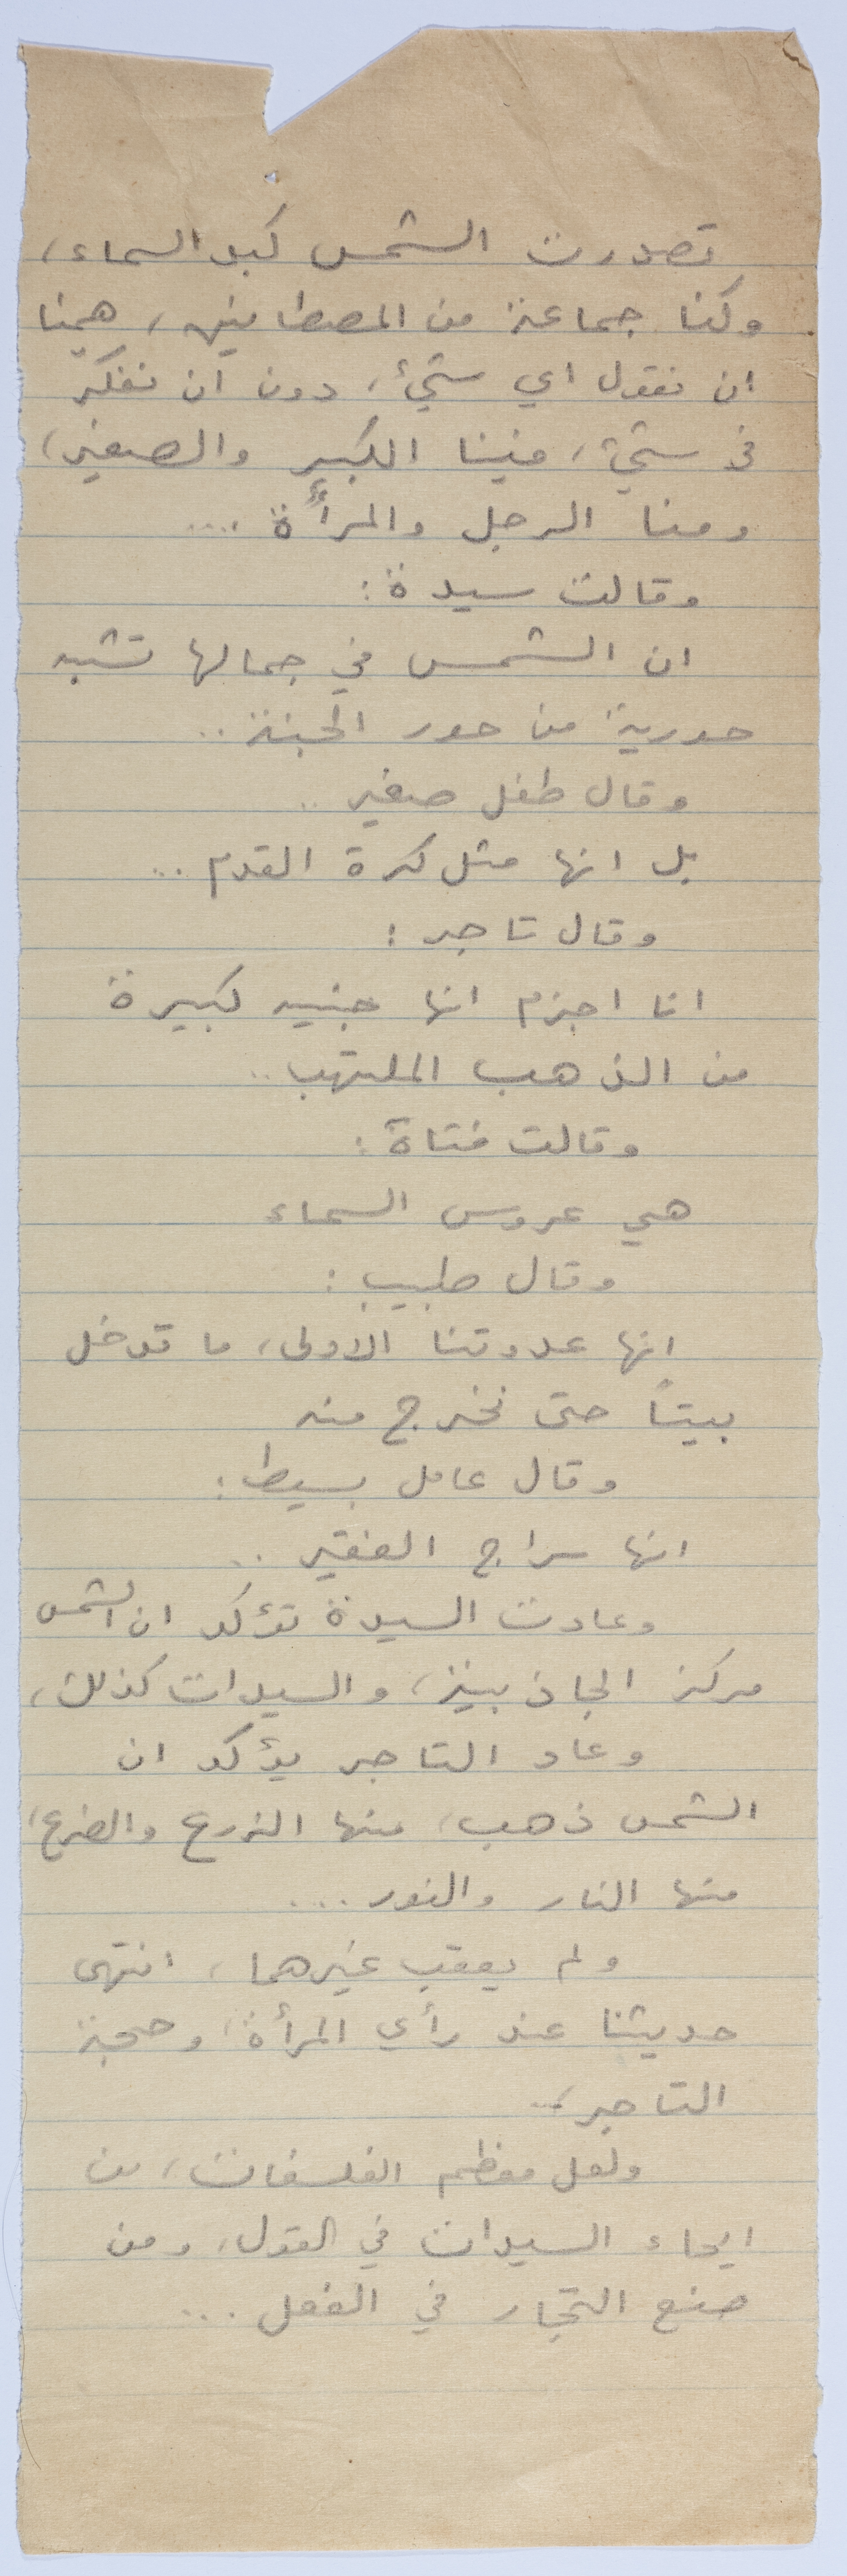 تصدرت الشمس كبد السماء،
وكنا جماعة من المصطافين، همنا
ان نقول اي شيء، دون ان نفكّر
في شيء، فينا الكبير والصغير،
ومنا الرجل والمرأة ....
وقالت سيدة :
ان الشمس في جمالها تشبه
حورية من حور الجنة ..
وقال طفل صغير ..
بل انها مثل كرة القدم ...
وقال تاجر :
انا اجزم انها جنيه كبيرة
من الذهب الملتهب ..
وقالت فتاة :
هي عروس السماء
وقال طبيب :
انها عدوتنا الاولى، ما تدخل
بيتاً حتى نخرج منه
وقال عامل بسيط :
انها سراج الفقير ..
وعادت السيدة تؤكد ان الشمس
مركز الجاذبية، والسيدات كذلك،
وعاد التاجر يؤكد ان
الشمس ذهب، منها الزرع والضرع،
منها النار والنور ...
ولم يعقب غيرهما، انتهى
حديثنا عند رأي المرأة، وحجة
التاجر ...
ولعل معظم الفلسفات، من
ايحاء السيدات في القول، ومن
صنع التجار في الفعل ...